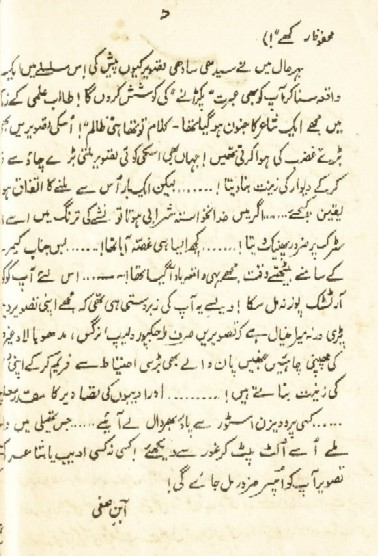 ۵
محفوظ رکھے"!)
بہرحال میں نے سیدھی سادھی تصویر کیوں پیش کی اِس سلسلے میں ایک
واقعہ سنا کر آپ کو بھی عبرت "پکڑوانے" کی کوشش کروں گا! طالب علمی کے
میں مجھے ایک شاعر کا جنون ہو گیا تھا۔ کلام تو تھا ہی ظالم"! اُسکی تصویریں بھی
بڑے غضب کی ہوا کرتی تھیں! جہاں بھی اسکی کوئی تصویر ملتی بڑے چاؤ سے
کر کے دیوار کی زینت بنا دیتا!........ لیکن ایک بار اُس سے ملنے کا اتفاق
یقین کیجئے..... اگر میں خدانخواستہ شرابی ہوتا تو نشے کی ترنگ میں اسے
سڑک پر ضرور پھینک دیتا!....... کچھ ایسا ہی غصّہ آیا تھا!...... بس جناب کیمرے
کے سامنے بیٹھتے وقت مجھے یہی واقعہ یاد آ گیا تھا!....... اس لئے آپ کو کوئی
آرٹسٹک پوز نہ مل سکا! ویسے یہ آپ کی زبردستی ہی تھی کہ مجھے اپنی تصویر
پڑی ورنہ میرا خیال ہے کہ تصویریں صرف دلیپ، نرگس، مدھوبالا وغیرہ
کی چھپنی چاہئیں جنھیں پان والے بھی بڑی احتیاط سے فریم کر کے اپنی
کی زینت بناتے ہیں!.......... اور ادیبوں کی تصاویر کا
..... کسی پرویزن اسٹور سے پاؤ بھر دال لے آئیے..... جس تھیلی میں
ملے اُسے اُلٹ پلٹ کر غور سے دیکھئے! کسی نہ کسی ادیب یا شاعر
تصویر آپ کو اُسپر ضرور مل جائے گی!
ابنِ صفی